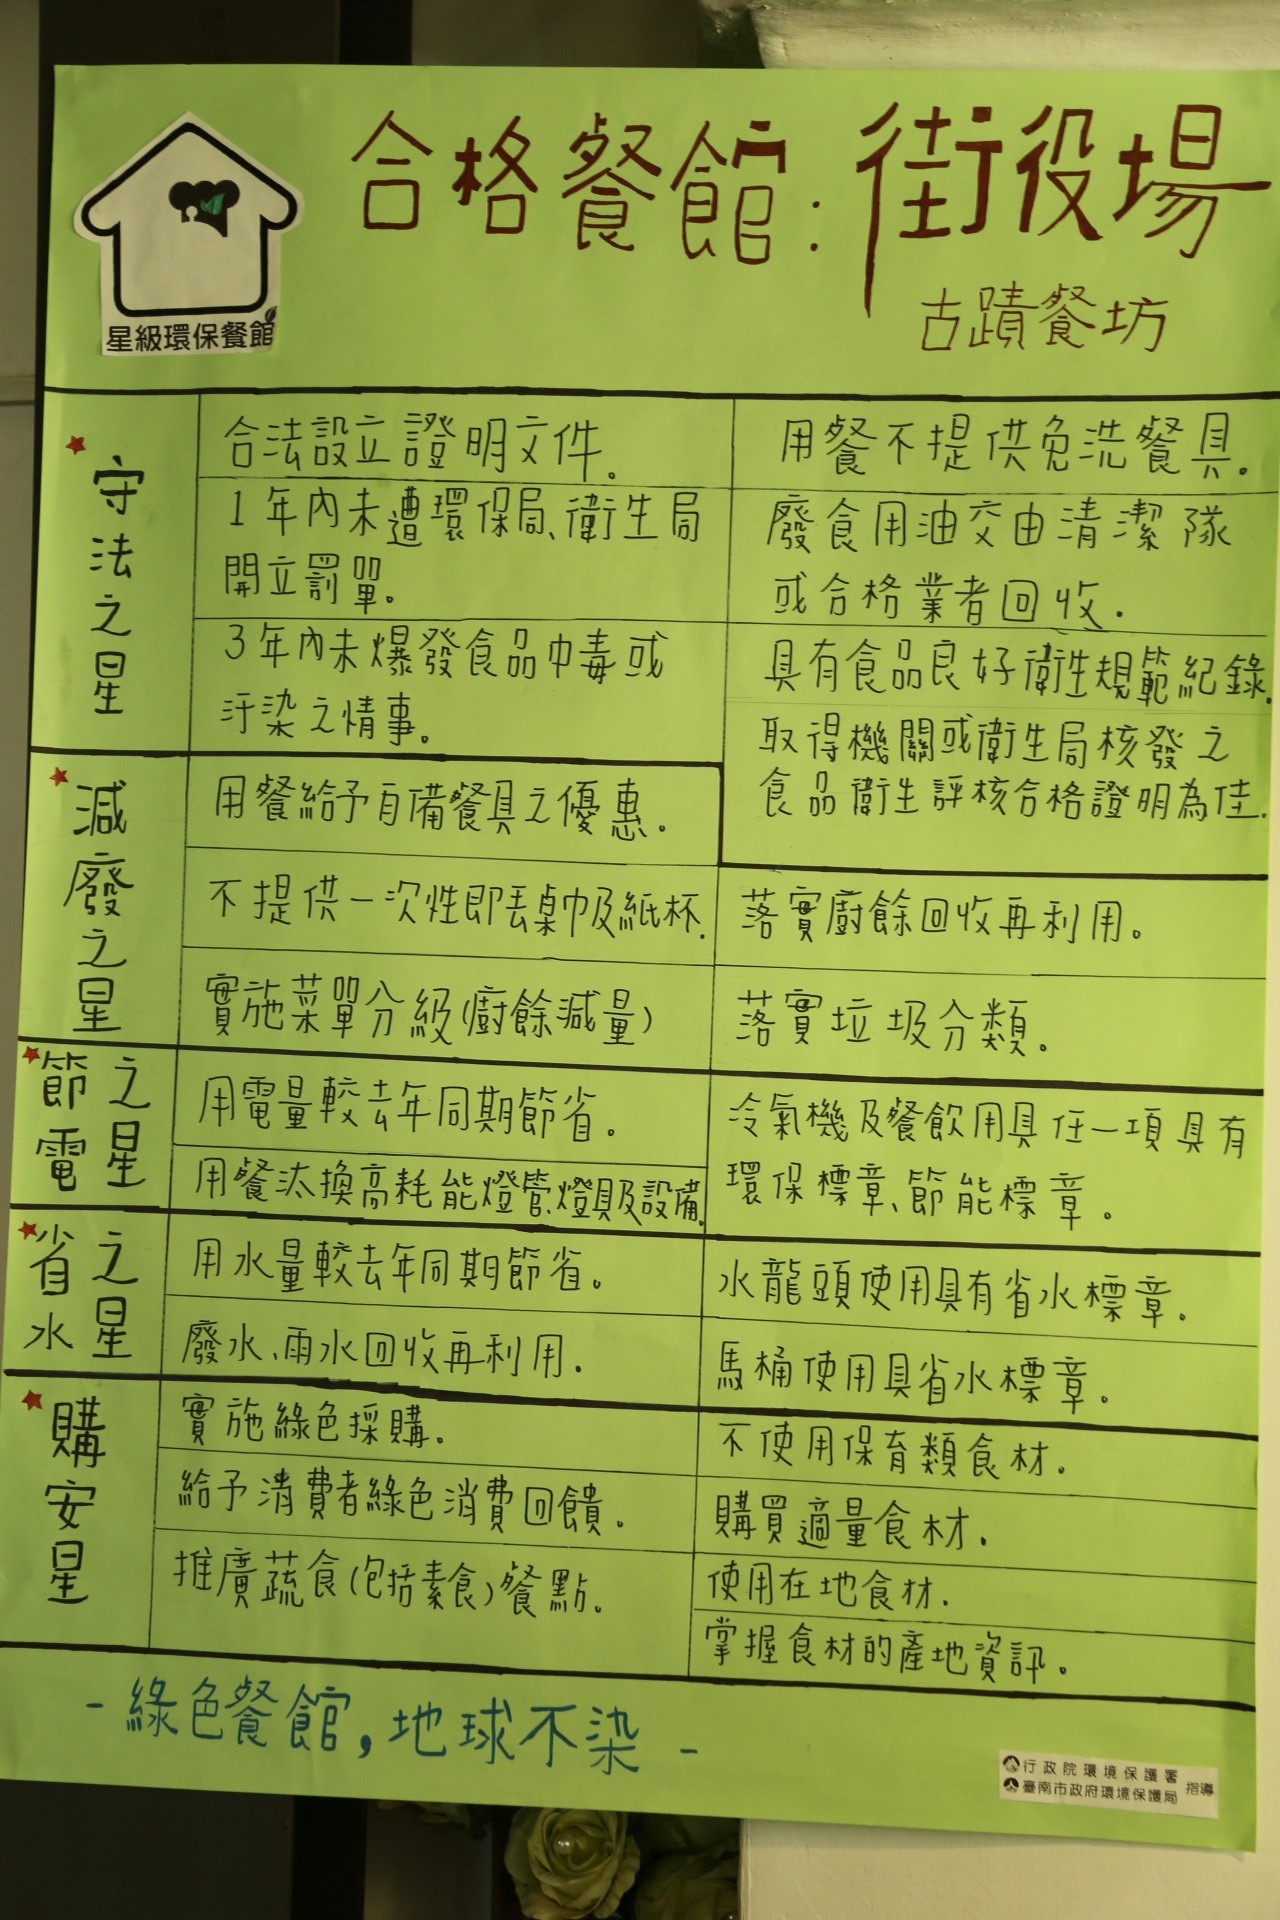 合格餐館：街役場
古蹟餐坊
星級環保餐館
守法之星
合法設立證明文件。
1年內未遭環保局、衛生局
開立罰單。
3年內未爆發食品中毒或
汙染之情事。
用餐不提供免洗餐具。
廢食用油交由清潔隊
或合格業者回收.
具有食品良好衛生規範紀錄.
取得機關或衛生局核發之
食品衛生評核合格證明為佳.
減廢之星
用餐給予自備餐具之優惠。
不提供一次性即丟桌巾及紙杯.
實施菜單分級(廚餘減量)
落實廚餘回收再利用。
落實垃圾分類。
節電之星
用電量較去年同期節省。
用餐汰換高耗能燈管、燈具及設備.
冷氣機及餐飲用具任一項具有
環保標章、節能標章。
省水之星
用水量較去年同期節省。
廢水、雨水回收再利用.
水龍頭使用具有省水標章。
馬桶使用具省水標章。
購安星
實施綠色採購。
給予消費者綠色消費回饋。
推廣蔬食(包括素食)餐點。
不使用保育類食材.
購買適量食材.
使用在地食材.
掌握食材的產地資訊。
-綠色餐館,地球不染-
行政院環境保護署
臺南市政府環境保護局 指導